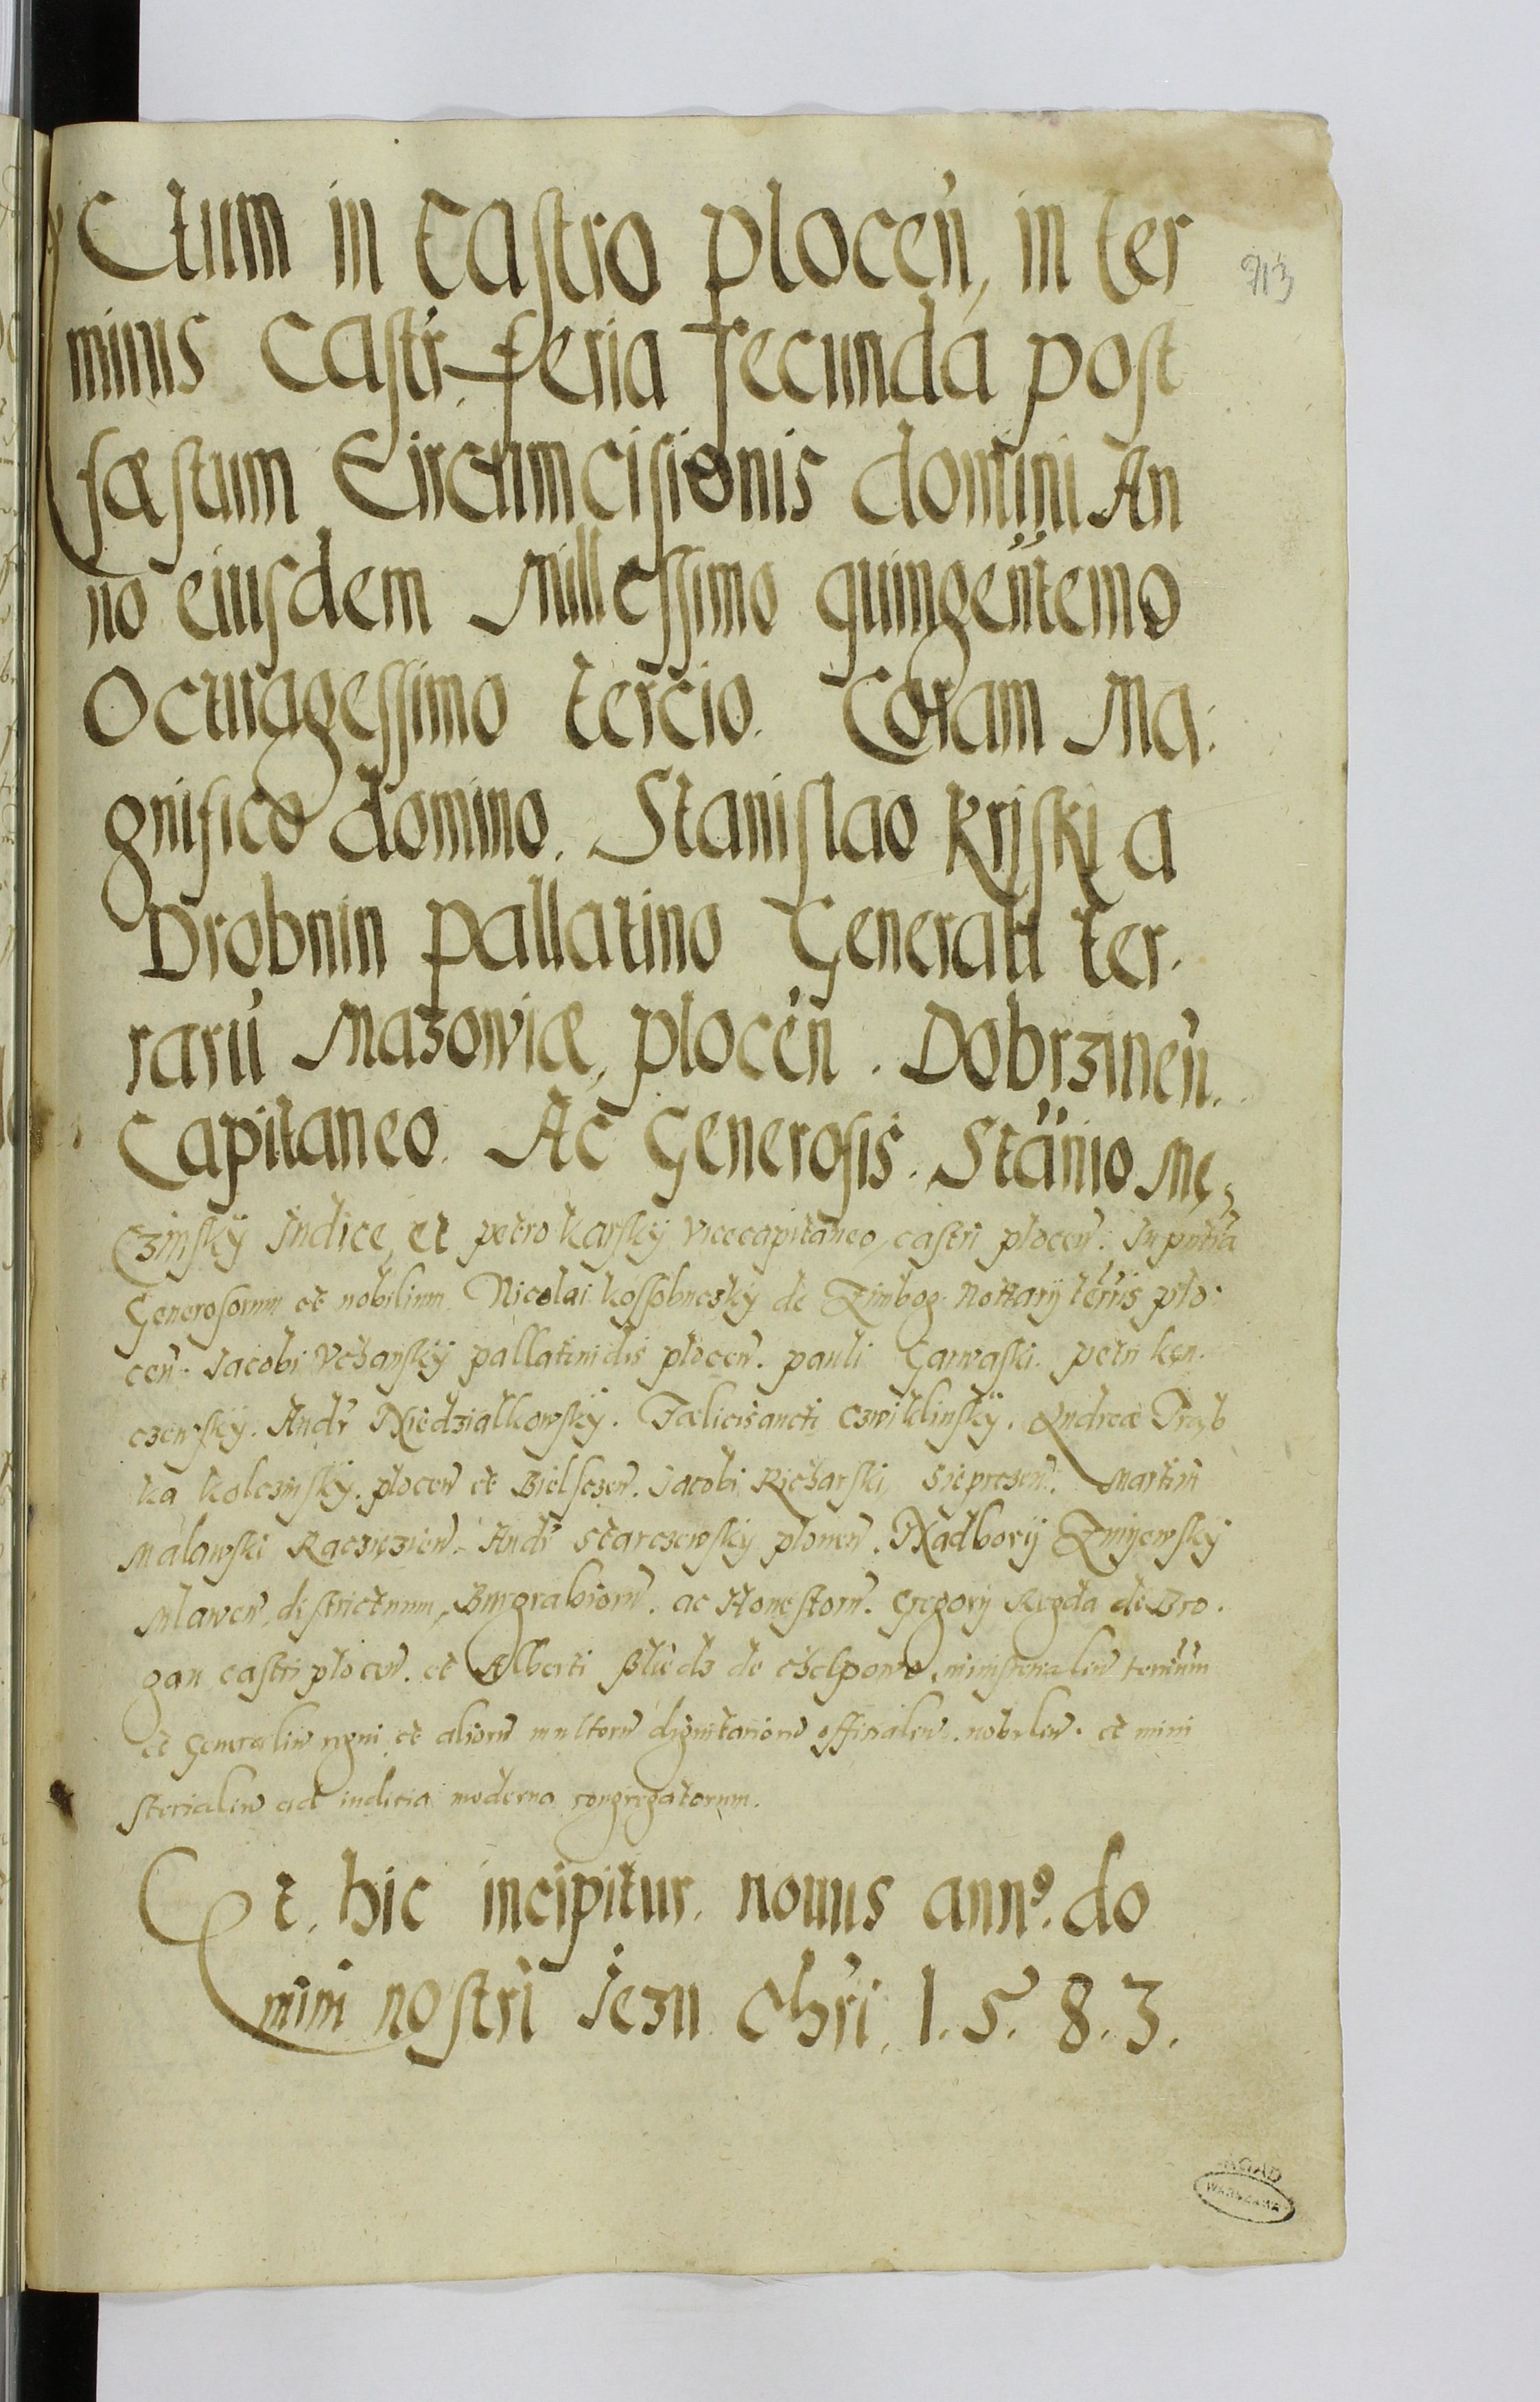 Ctum in Castro plocen, in ter
913
minis Castr. feria secunda post
fæstum Circumcisionis domini An
no eiusdem Millessimo quingentemo
Octuagessimo tercio. Coram Ma:
gnifico domino. Stanislao kriski a
Drobnin pallatino Generali ter.
raru Mazowiæ, plocen. Dobrzinen.
Capitaneo. Ac Generosis. Stanio Mę,
Czinskÿ Iudice, et petro karskÿ vicecapitaneo, castri plocen. In pntia
Generosorum et nobilium. Nicolai kossobucskÿ de Zimbog. Nottarÿ terris plo.
cen. Jacobi Vchanskÿ pallatinidis plocen. pauli Garwaski. petri kęn.
czewskÿ. Andr Niedzialkowskÿ. Fælicisancti Czwiklinskÿ. Andreæ Trąb
ka kolczinskÿ. plocen et Bielsczen. Jacobi Richarski Siepreczen. Martin
Malawski Raczięzien. Andr Starczewskÿ plonen. Nadborÿ Zmijewskÿ
Mlawen. districtuum, Burgrabioru. ac Honestoru. Gregorÿ Ręgda de Bro.
gan castri plocen. et Alberti sliedz de chelpowo, ministerialiu terrarum
et Generaliu regni et alioru multoru dignitarioru officialiu. nobiliu. et mini
sterialiu ad iudicia moderna congregatorum.
Et. hic incipitur. nouus ann9. do
mini nostri Jezu Chri. 1. 5. 8. 3.
AGAD
WARSZAWA